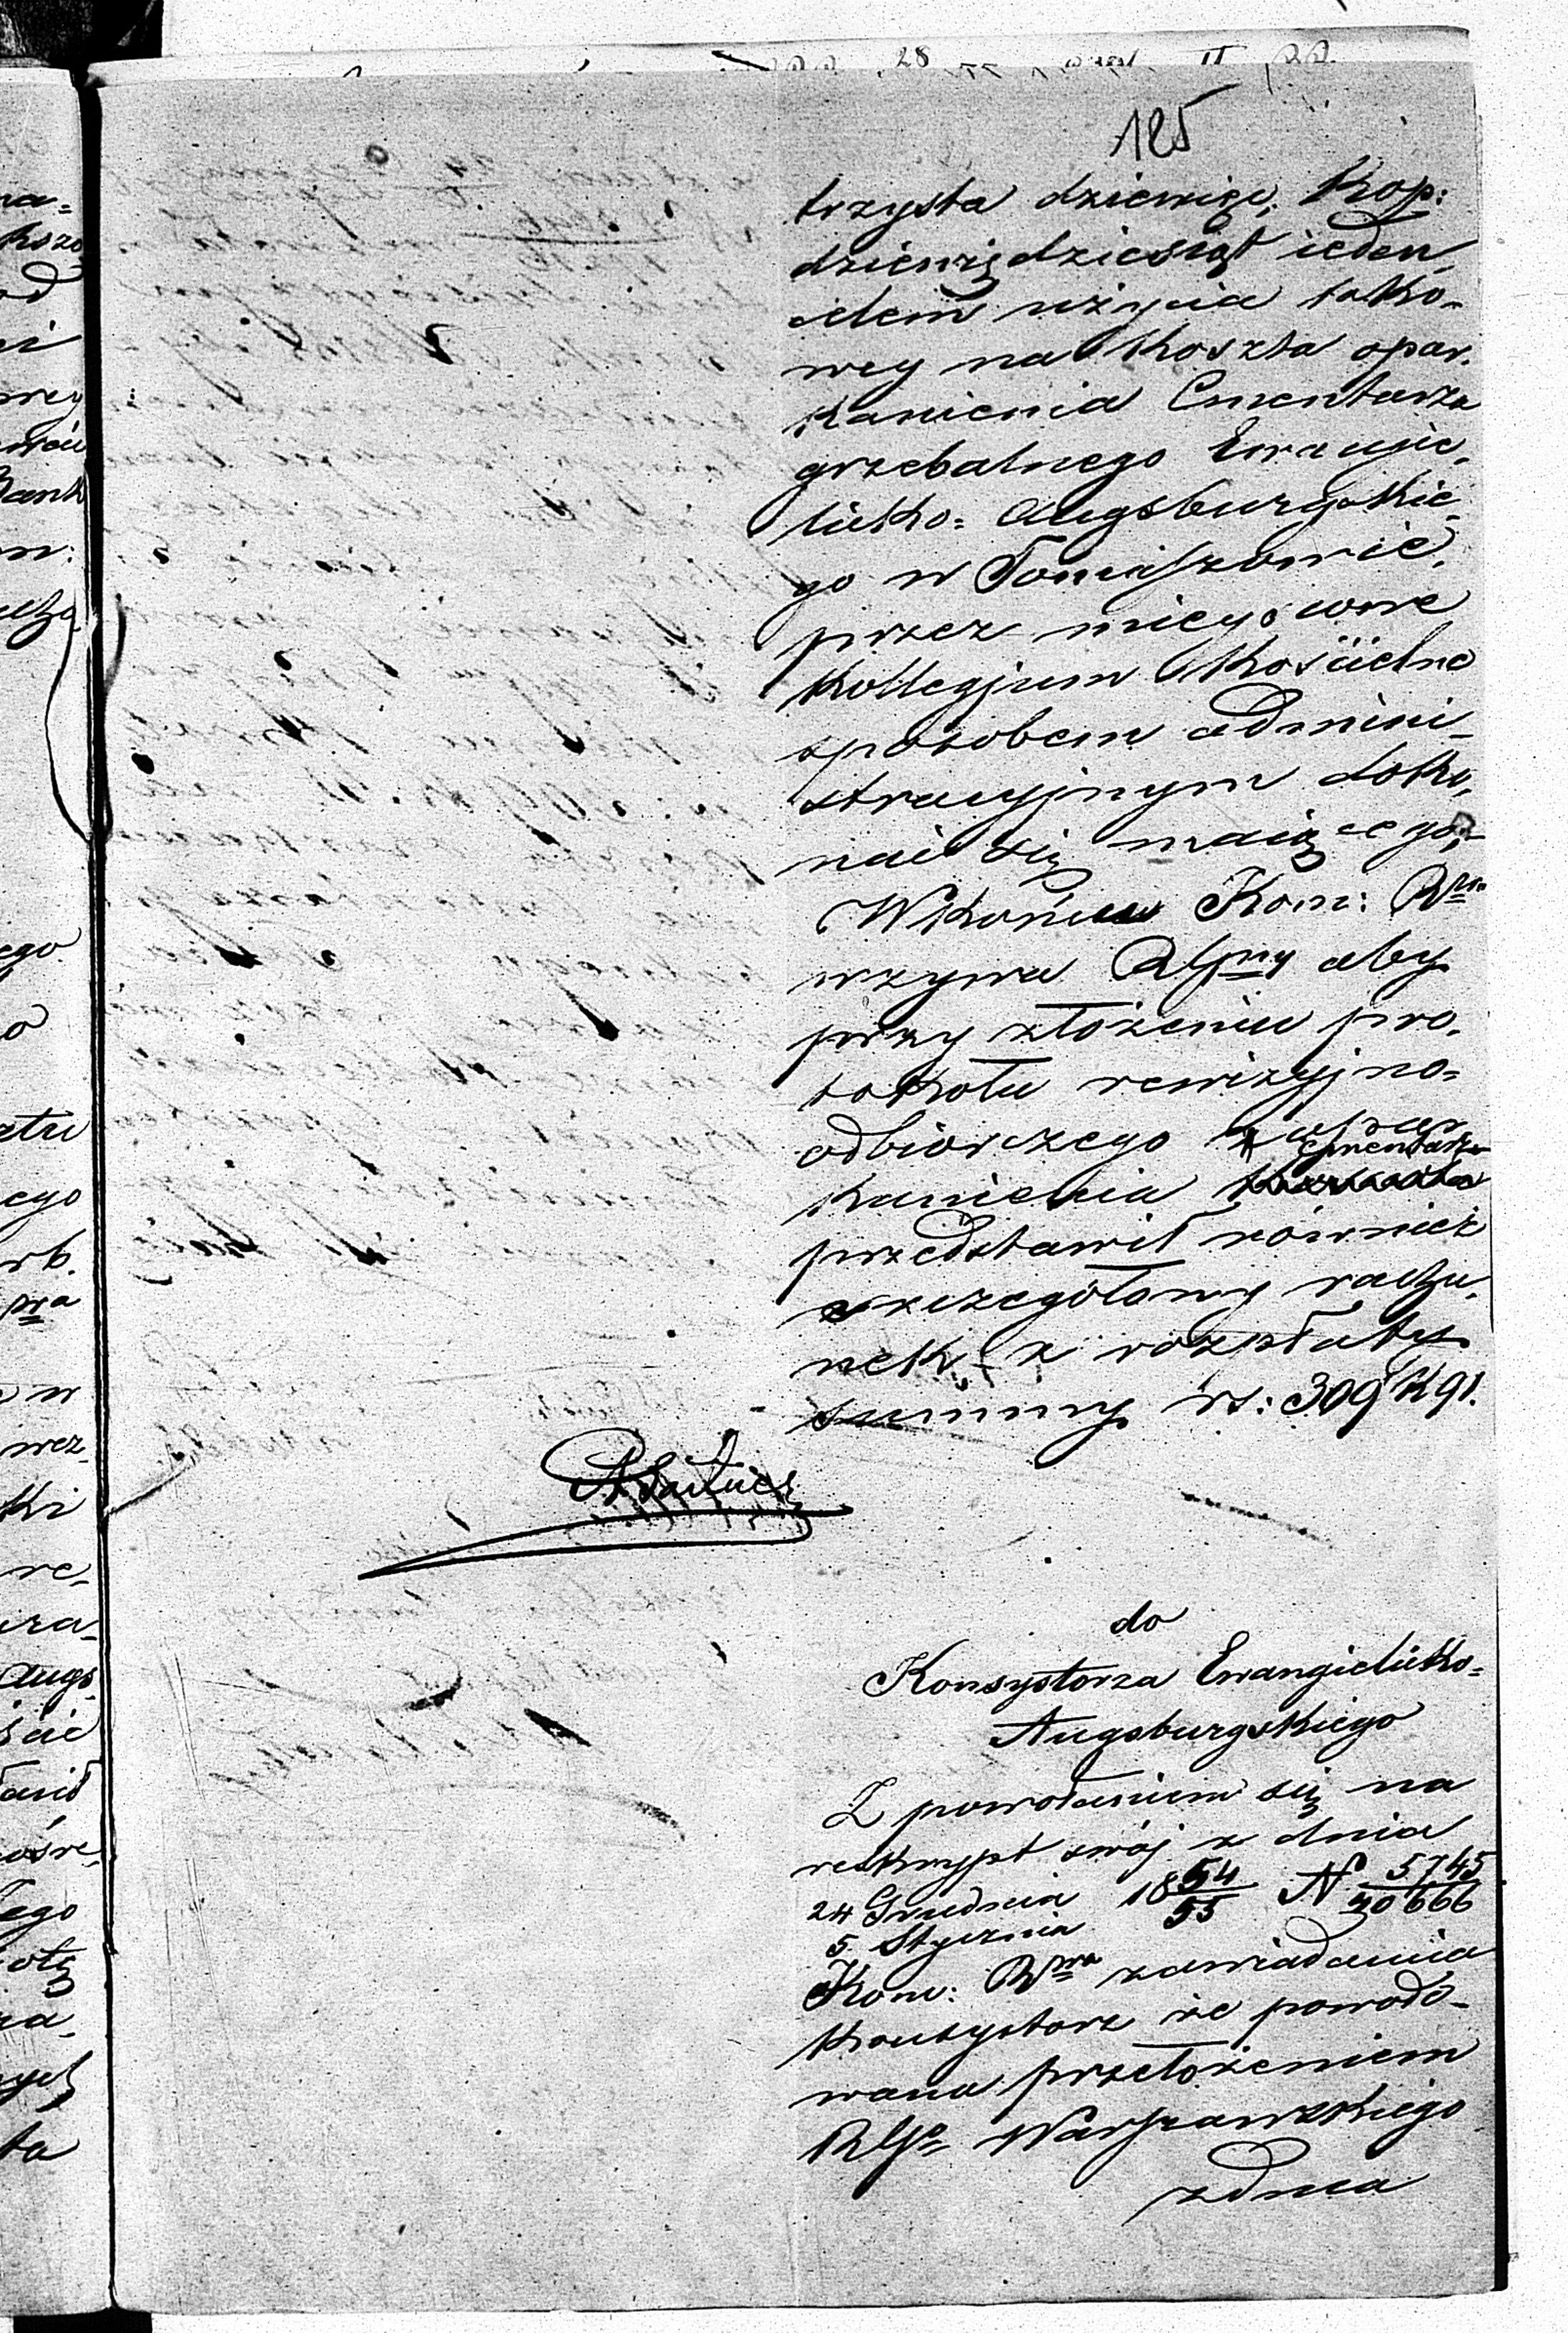 125
trzysta dziewięć, Kop:
dziewięćdziesiąt ieden,
celem użycia tako-
wey na Koszta opar,
Kanienia Cmentarza
grzebalnego Ewangie,
licko= Augsburgskie,
go w Tomaszowie,
przez mieyscowe
Kollegjum Kościelne
sposobem admini-
stracyjnym doko,
nać się maiącego,-
WKońcu Kom: Rwa
wzywa RGny aby
przy złożeniu pro,
tokołu rewizyjno=
odbiorczego z opar
Kanienia cmentarza
przedstawił również
szczegółowy rachu,
nek z rozpłaty
summy rs: 309 K 91.
do
Konsystorza Ewangielicko=
Augsburgskiego
Z powołaniem się na
reskrypt swój z dnia
24 Grudnia 1854 N 5745
5 Stycznia 55 30666
Kom: Rwa zawiadamia
Konsystorz że powodo-
wana przełożeniem
RGo Warszawskiego
zdnia
ra=
Koszo
od
ni
wey
Bank
ego
o
ego
rb.
wa
w
wez,
Ki
re,
ura-
Augs,
ego
ta